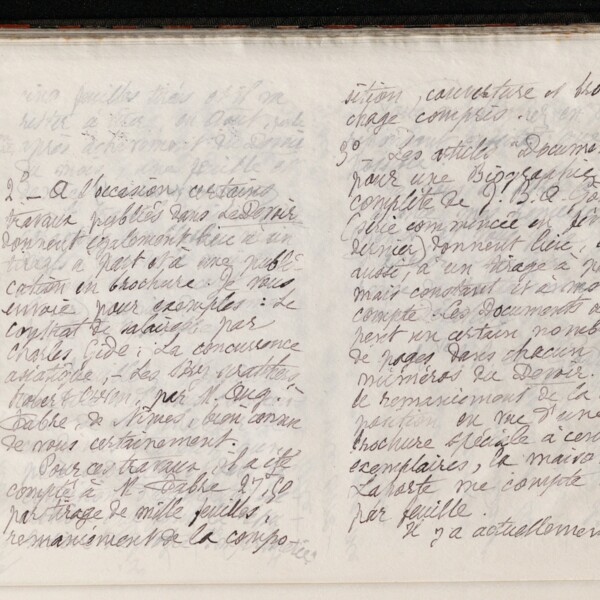 2° — A l'occasion, certains
travaux publiés dans Le Devoir
donnent également lieu à un
tirage à part et à une publi-
cation en brochure. Je vous
envoie pour exemples : Le
contrat de salariat par
Charles Gide ; La concurrence
asiatique, — Les
Owen, par M. Aug.
Fabre, de Nîmes, bien connu
de vous certainement.
Pour ces travaux, il a été
compté à M. Fabre 27,50
par tirage de mille feuilles,
remaniement de la compo-
sition, couverture et bro
chage compris.
3° — Les articles "Docume
pour une Biographie
complète de J. B. A. Go
(série commencée en
dernier) donnent lieu,
aussi, à un tirage à p
mais constant et à mo
compte. Ces Documents o
pent un certain nomb
de pages dans chacun
numéros du Devoir.
le remaniement de la
position en vue d'une
brochure spéciale à cen
exemplaires, la maiso
Laporte me compte
par feuille.
Il y a actuellemen